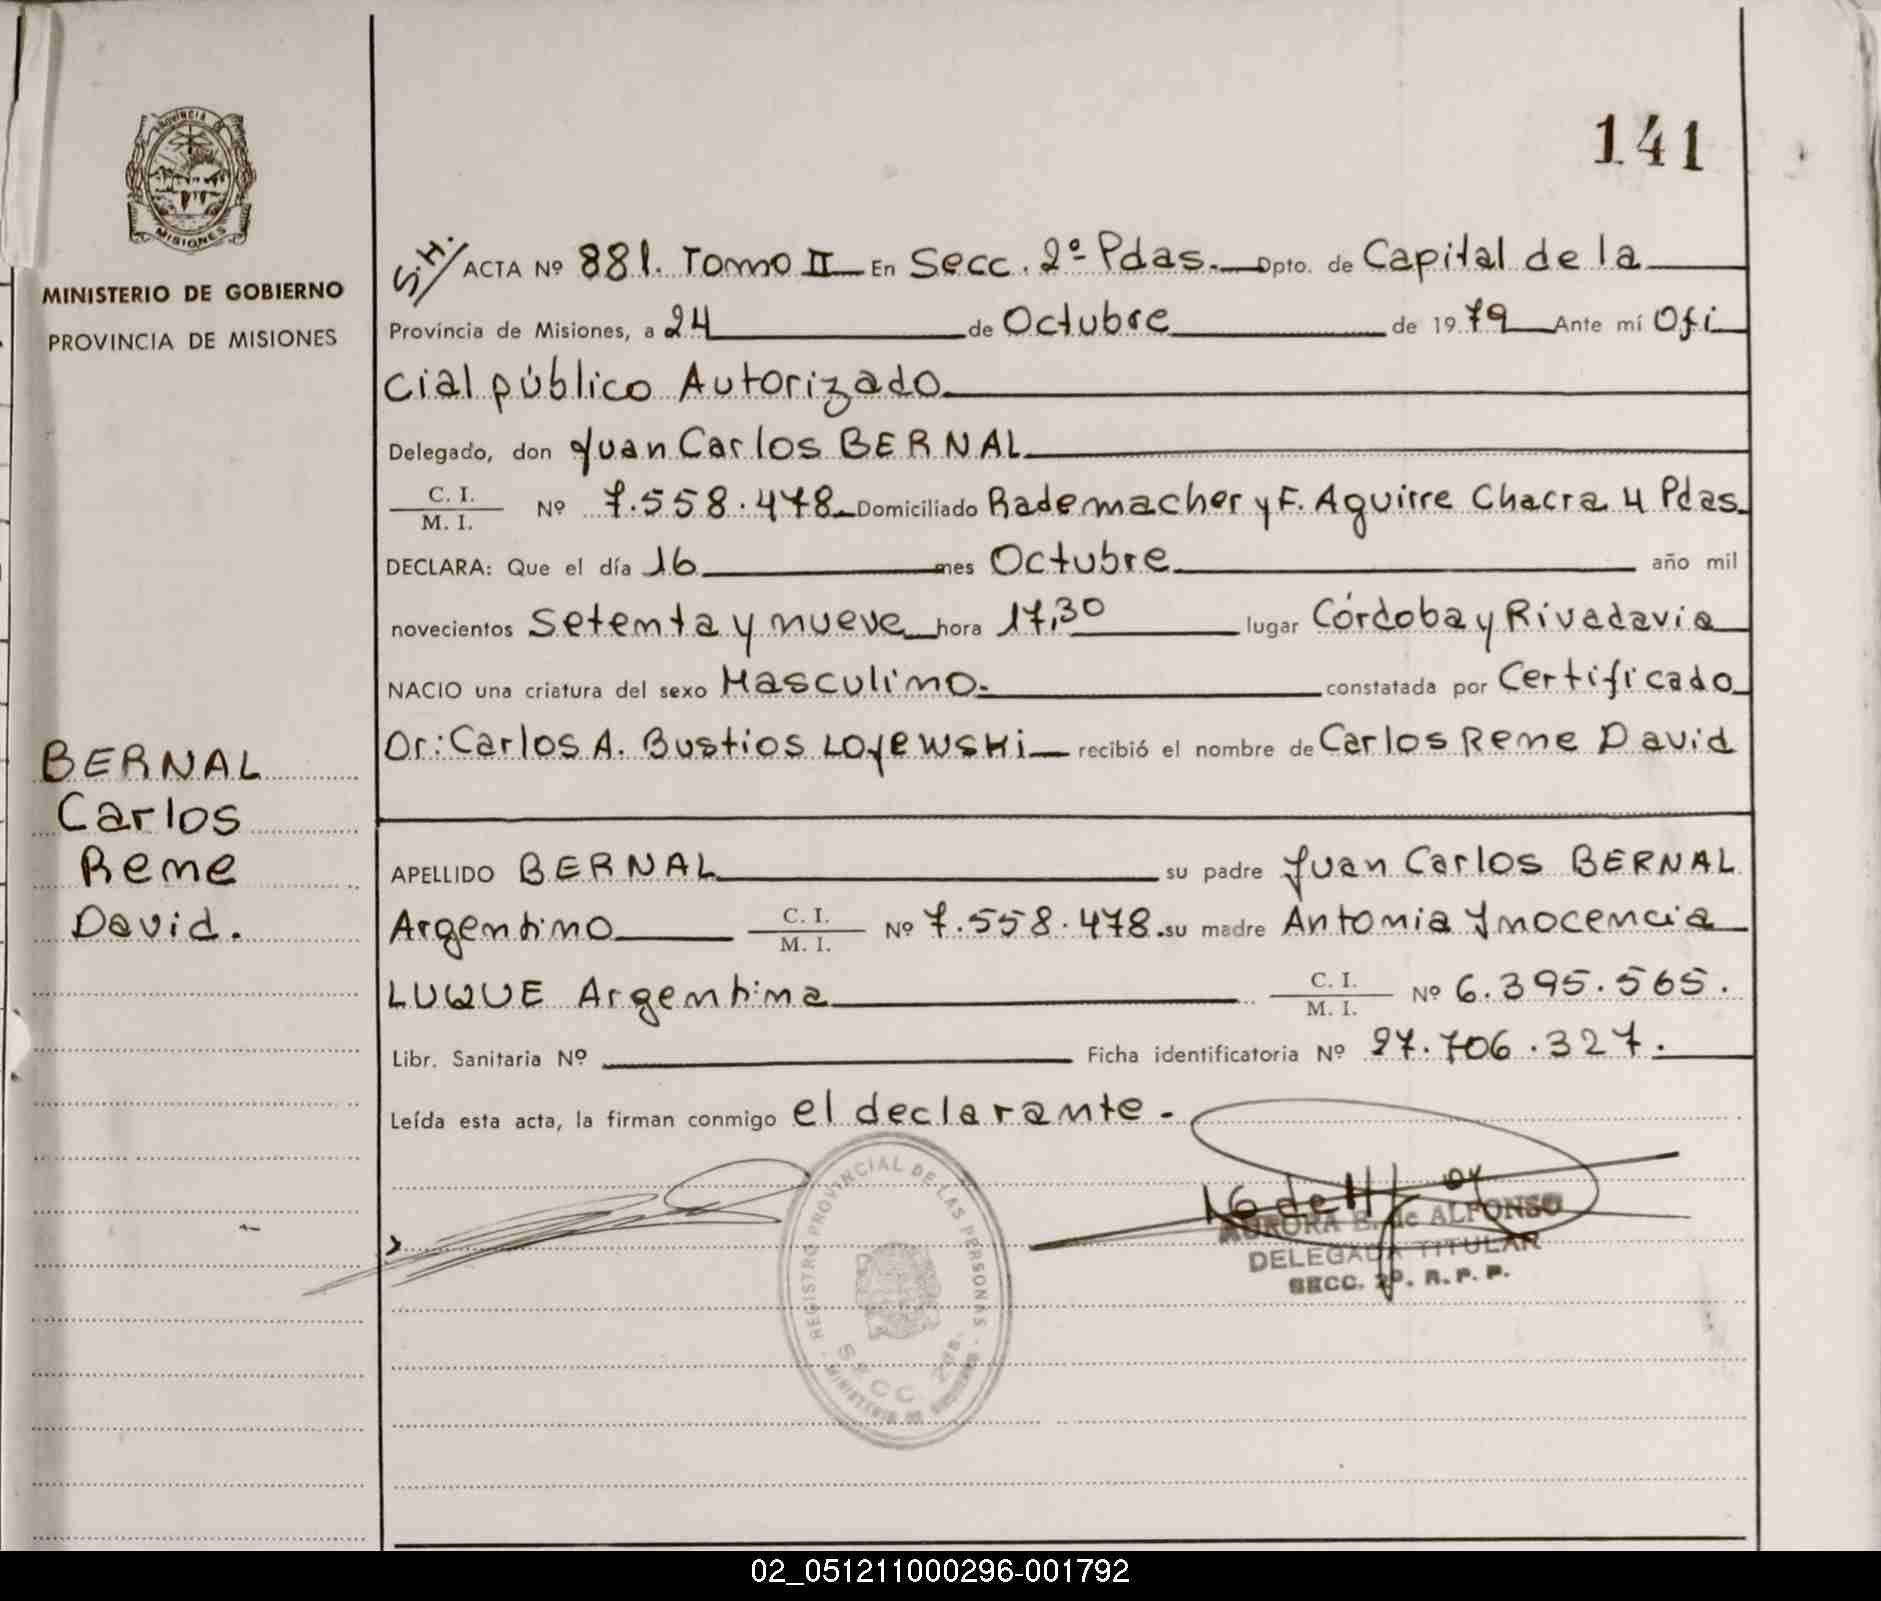 141
PROVINCIA DE
MISIONES
MINISTERIO DE GOBIERNO
PROVINCIA DE MISIONES
S.H. ACTA Nº 881. Tomo II En Secc. 2º Pdas. Dpto. de Capital de la
Provincia de Misiones, a 24 de Octubre de 1979 Ante mí Ofi
cial público Autorizado
Delegado, don Juan Carlos BERNAL
C. I.
M. I.
Nº 7.558.478 Domiciliado Rademacher y F. Aguirre Chacra 4 Pdas.
DECLARA: Que el día 16 mes Octubre año mil
novecientos setenta y nueve hora 17,30 lugar Córdoba y Rivadavia
NACIO una criatura del sexo Masculino. constatada por Certificado
Dr: Carlos A. Bustios Loyewski recibió el nombre de Carlos Rene David
BERNAL
Carlos
Rene
David.
APELLIDO BERNAL su padre Juan Carlos BERNAL
Argentino C. I. M. I. Nº 7.558.478. su madre Antonia Ynocencia
LUQUE Argentina C. I. M. I. Nº 6.395.565.
Libr. Sanitaria Nº Ficha identificatoria Nº 27.706.327.
Leída esta acta, la firman conmigo el declarante.
REGISTRO PROVINCIAL DE LAS PERSONAS
SECC. 2da.
MINISTERIO DE GOBIERNO
AURORA B. de ALFONSO
DELEGADA TITULAR
SECC. 2º. R. P. P.
02_051211000296-001792